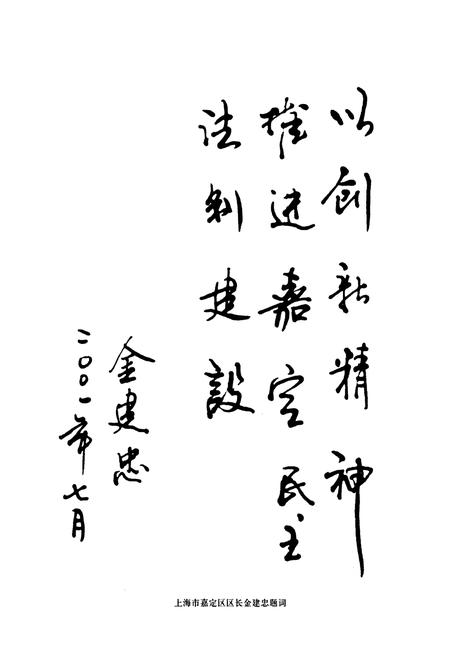 以创新精神
推进嘉定民主
法制建设
金建忠
二〇〇一年七月
上海市嘉定区区长金建忠题词